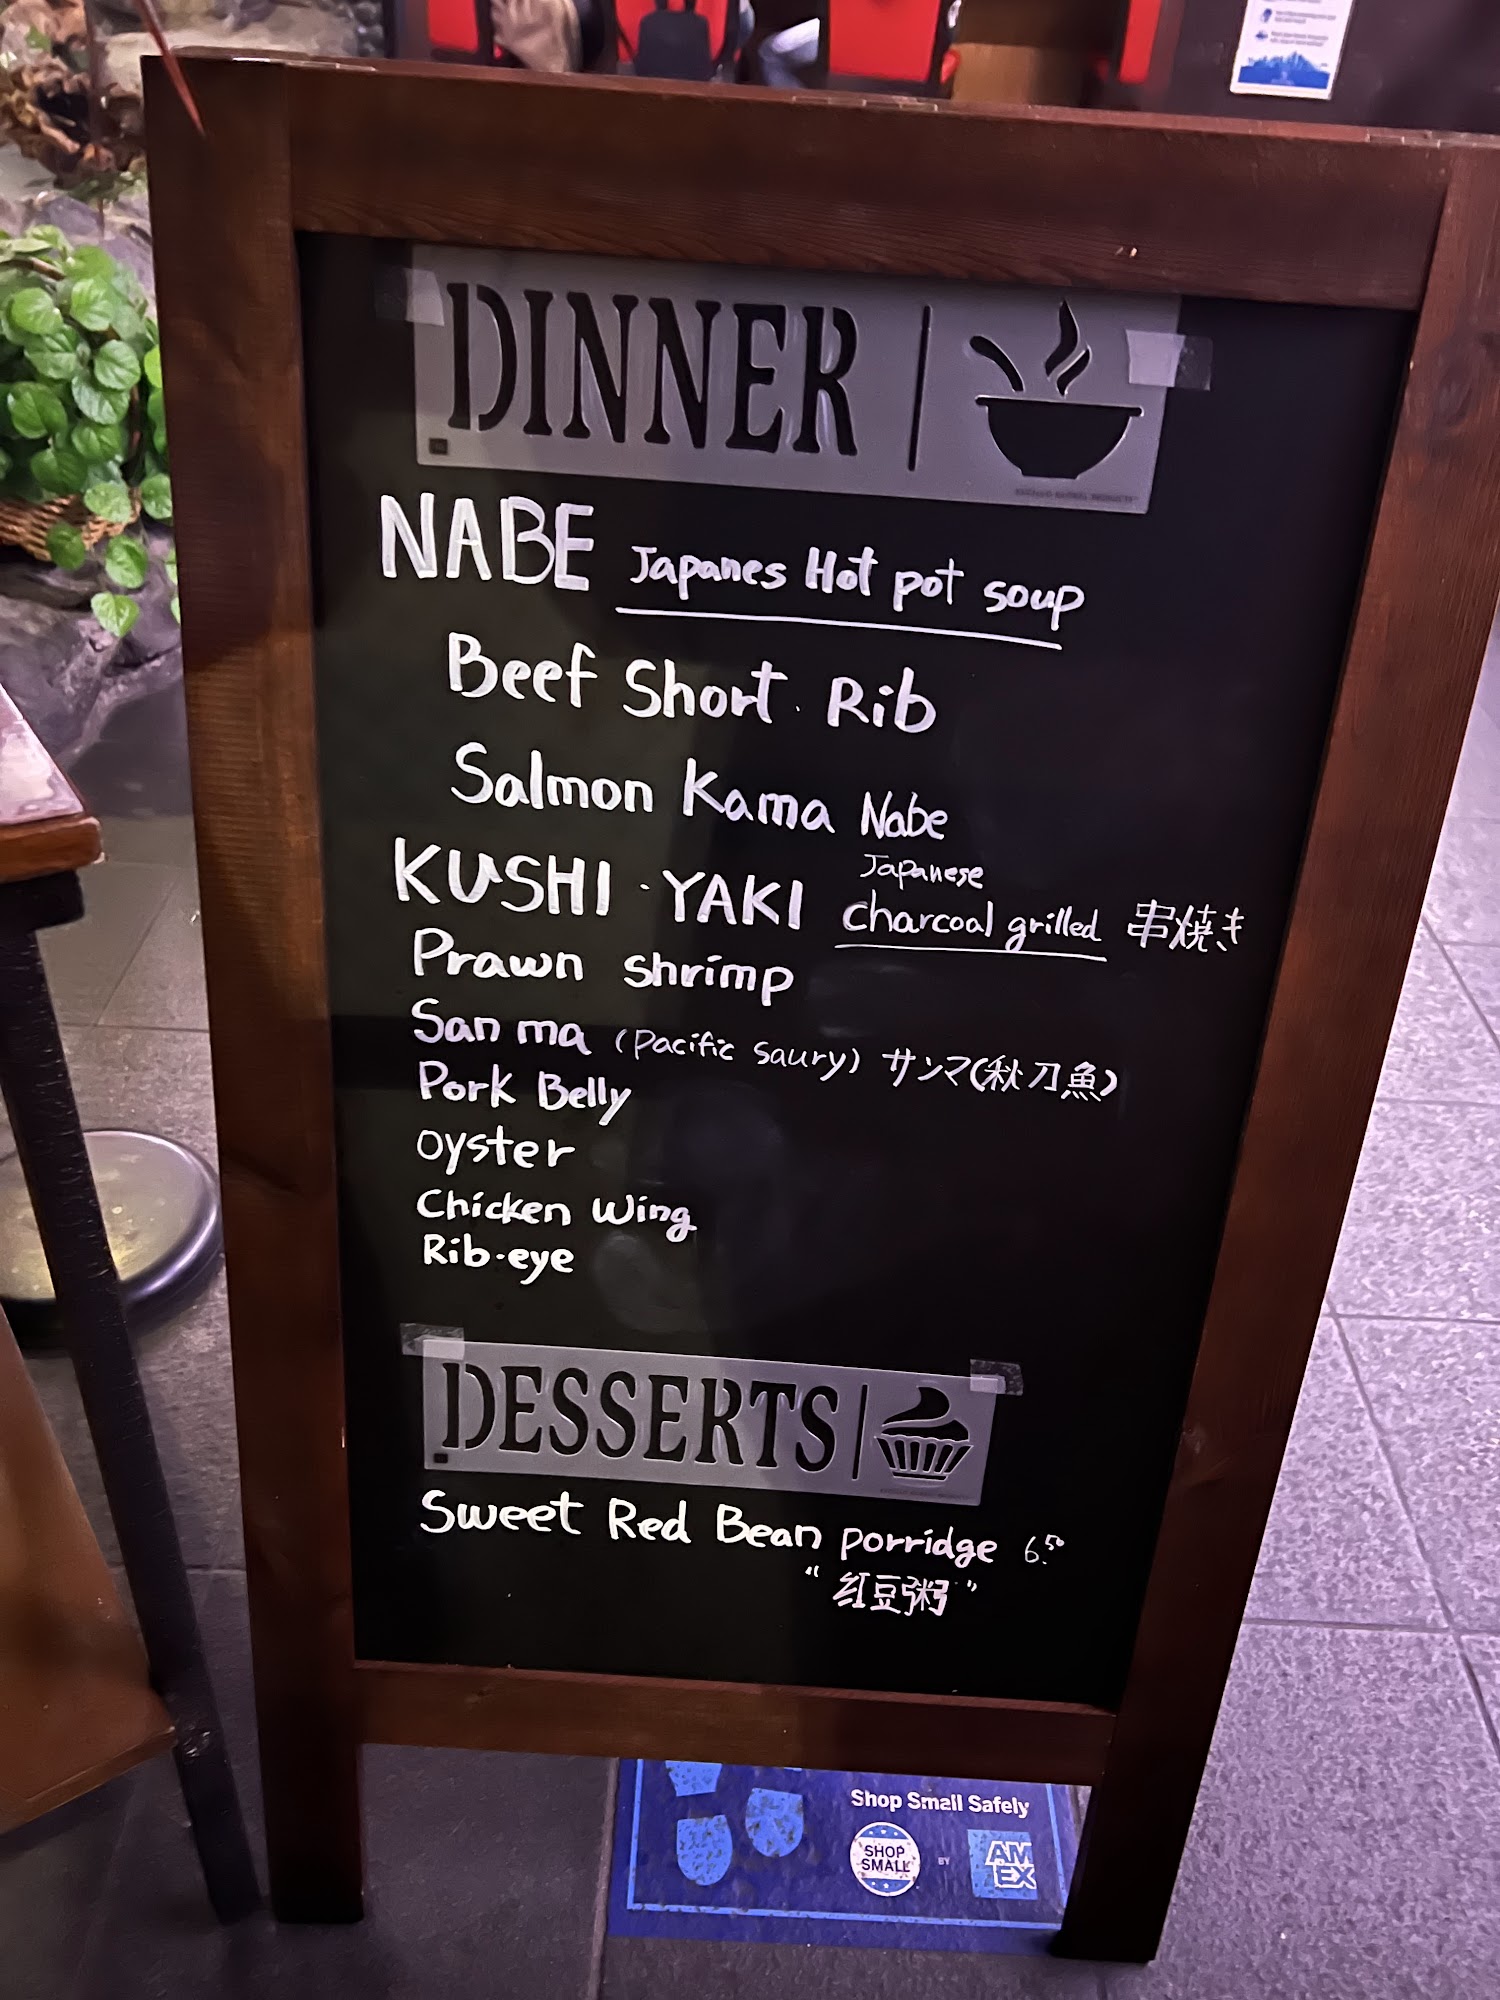 DINNER
NABE Japanes Hot pot soup
Beef Short Rib
Salmon Kama Nabe
KUSHI・YAKI Japanese
charcoal grilled 串焼き
Prawn shrimp
San ma (Pacific saury) サンマ(秋刀魚)
Pork Belly
oyster
Chicken Wing
Rib-eye
DESSERTS
Sweet Red Bean porridge 6.50
"红豆粥"
Shop Small Safely
SHOP
SMALL
BY
AM
EX